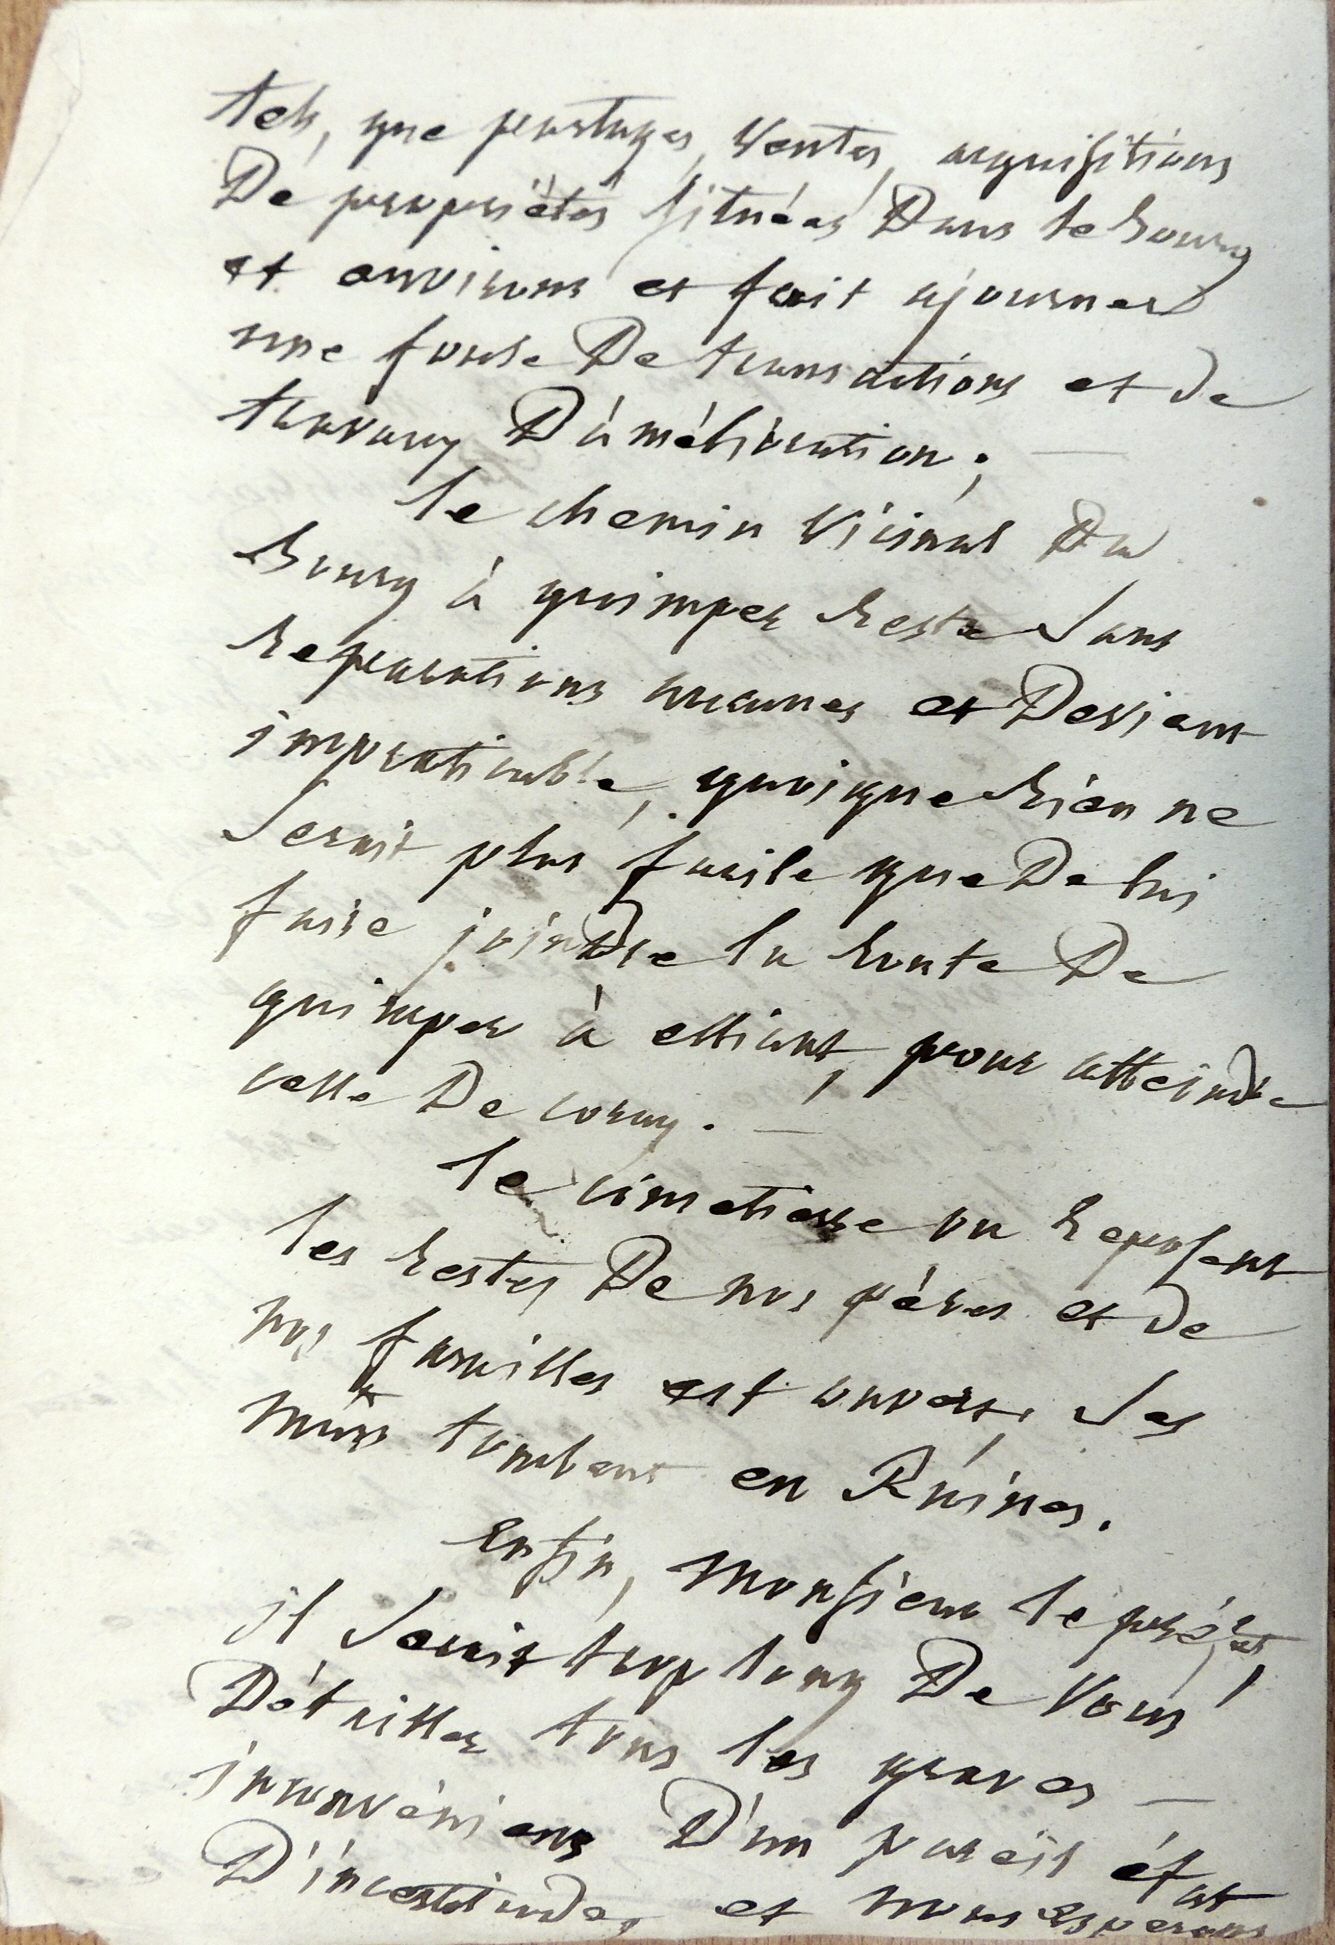 tels, que partages, ventes, acquisitions
De propriétés situées Dans le bourg
et environs et fait ajourner
une foule De transactions et de
travaux D'amélioration ; —
le chemin vicinal Du
bourg à quimper reste sans
reparations aucunes et Devient
impraticable, quoique rien ne
serait plus facile que De lui
faire joindre la route De
quimper à elliant, pour atteindre
celle De coray. —
le cimetierre ou reposent
les restes De nos pères et de
nos familles est ouvert, ses
murs tombent en Ruines.
enfin, monsieur le préfet,
il serait trop long De vous
Détailler tous les graves —
inconvéniens D'un pareil état
D'incertitude, et nous esperons